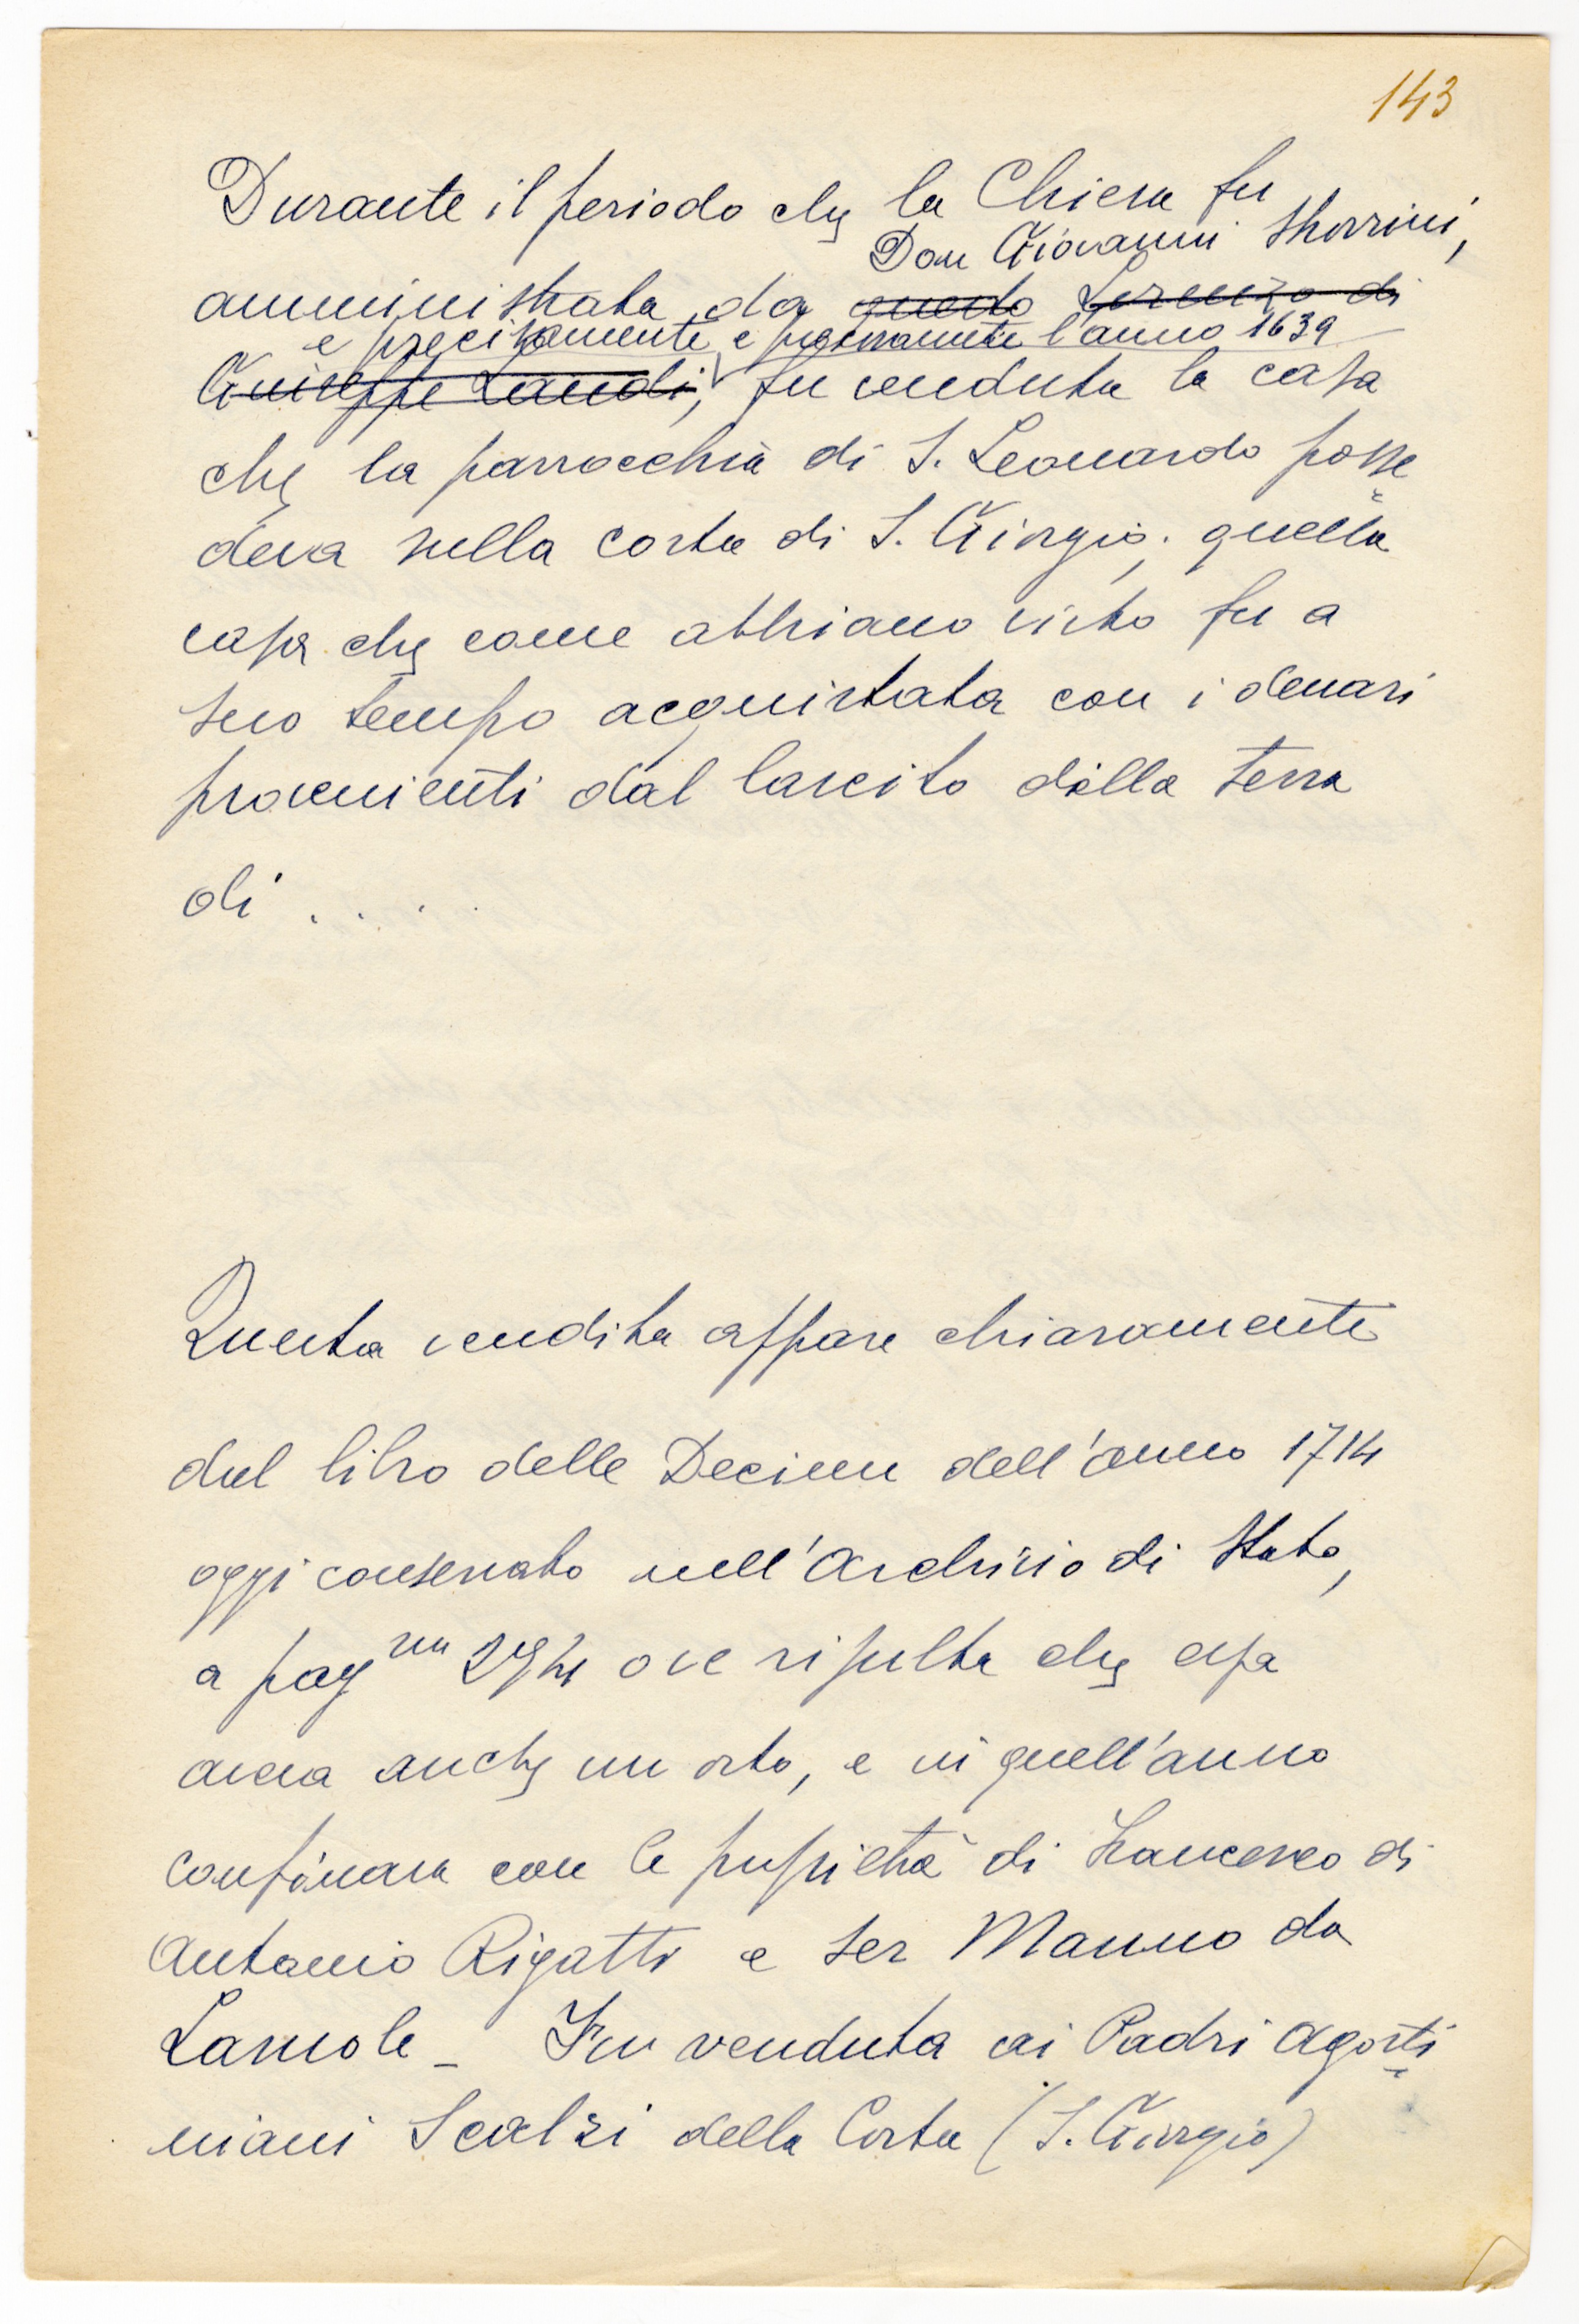 143
Durante il periodo che la Chiesa fu
Don Giovanni Sborrini,
amministrata da questo Lorenzo di
e precisamente e precisamente l'anno 1639
Giuseppe Landi, fu venduta la casa
che la parrocchia di S. Leonardo posse
deva sulla costa di S. Giorgio; quella
casa che come abbiamo visto fu a
suo tempo acquistata con i denari
provenienti dal lascito della terra
di . . . .
Questa vendita appare chiaramente
dal libro delle Decime dell'anno 1714
oggi conservato nell'Archivio di Stato,
a pag na ove risulta che essa
aveva anche un orto, e in quell'anno
confinava con le proprietà di Francesco di
Antonio Rigatti e ser Manno da
Lamole - Fu venduta ai Padri Agosti
niani Scalzi della Costa (S. Giorgio)